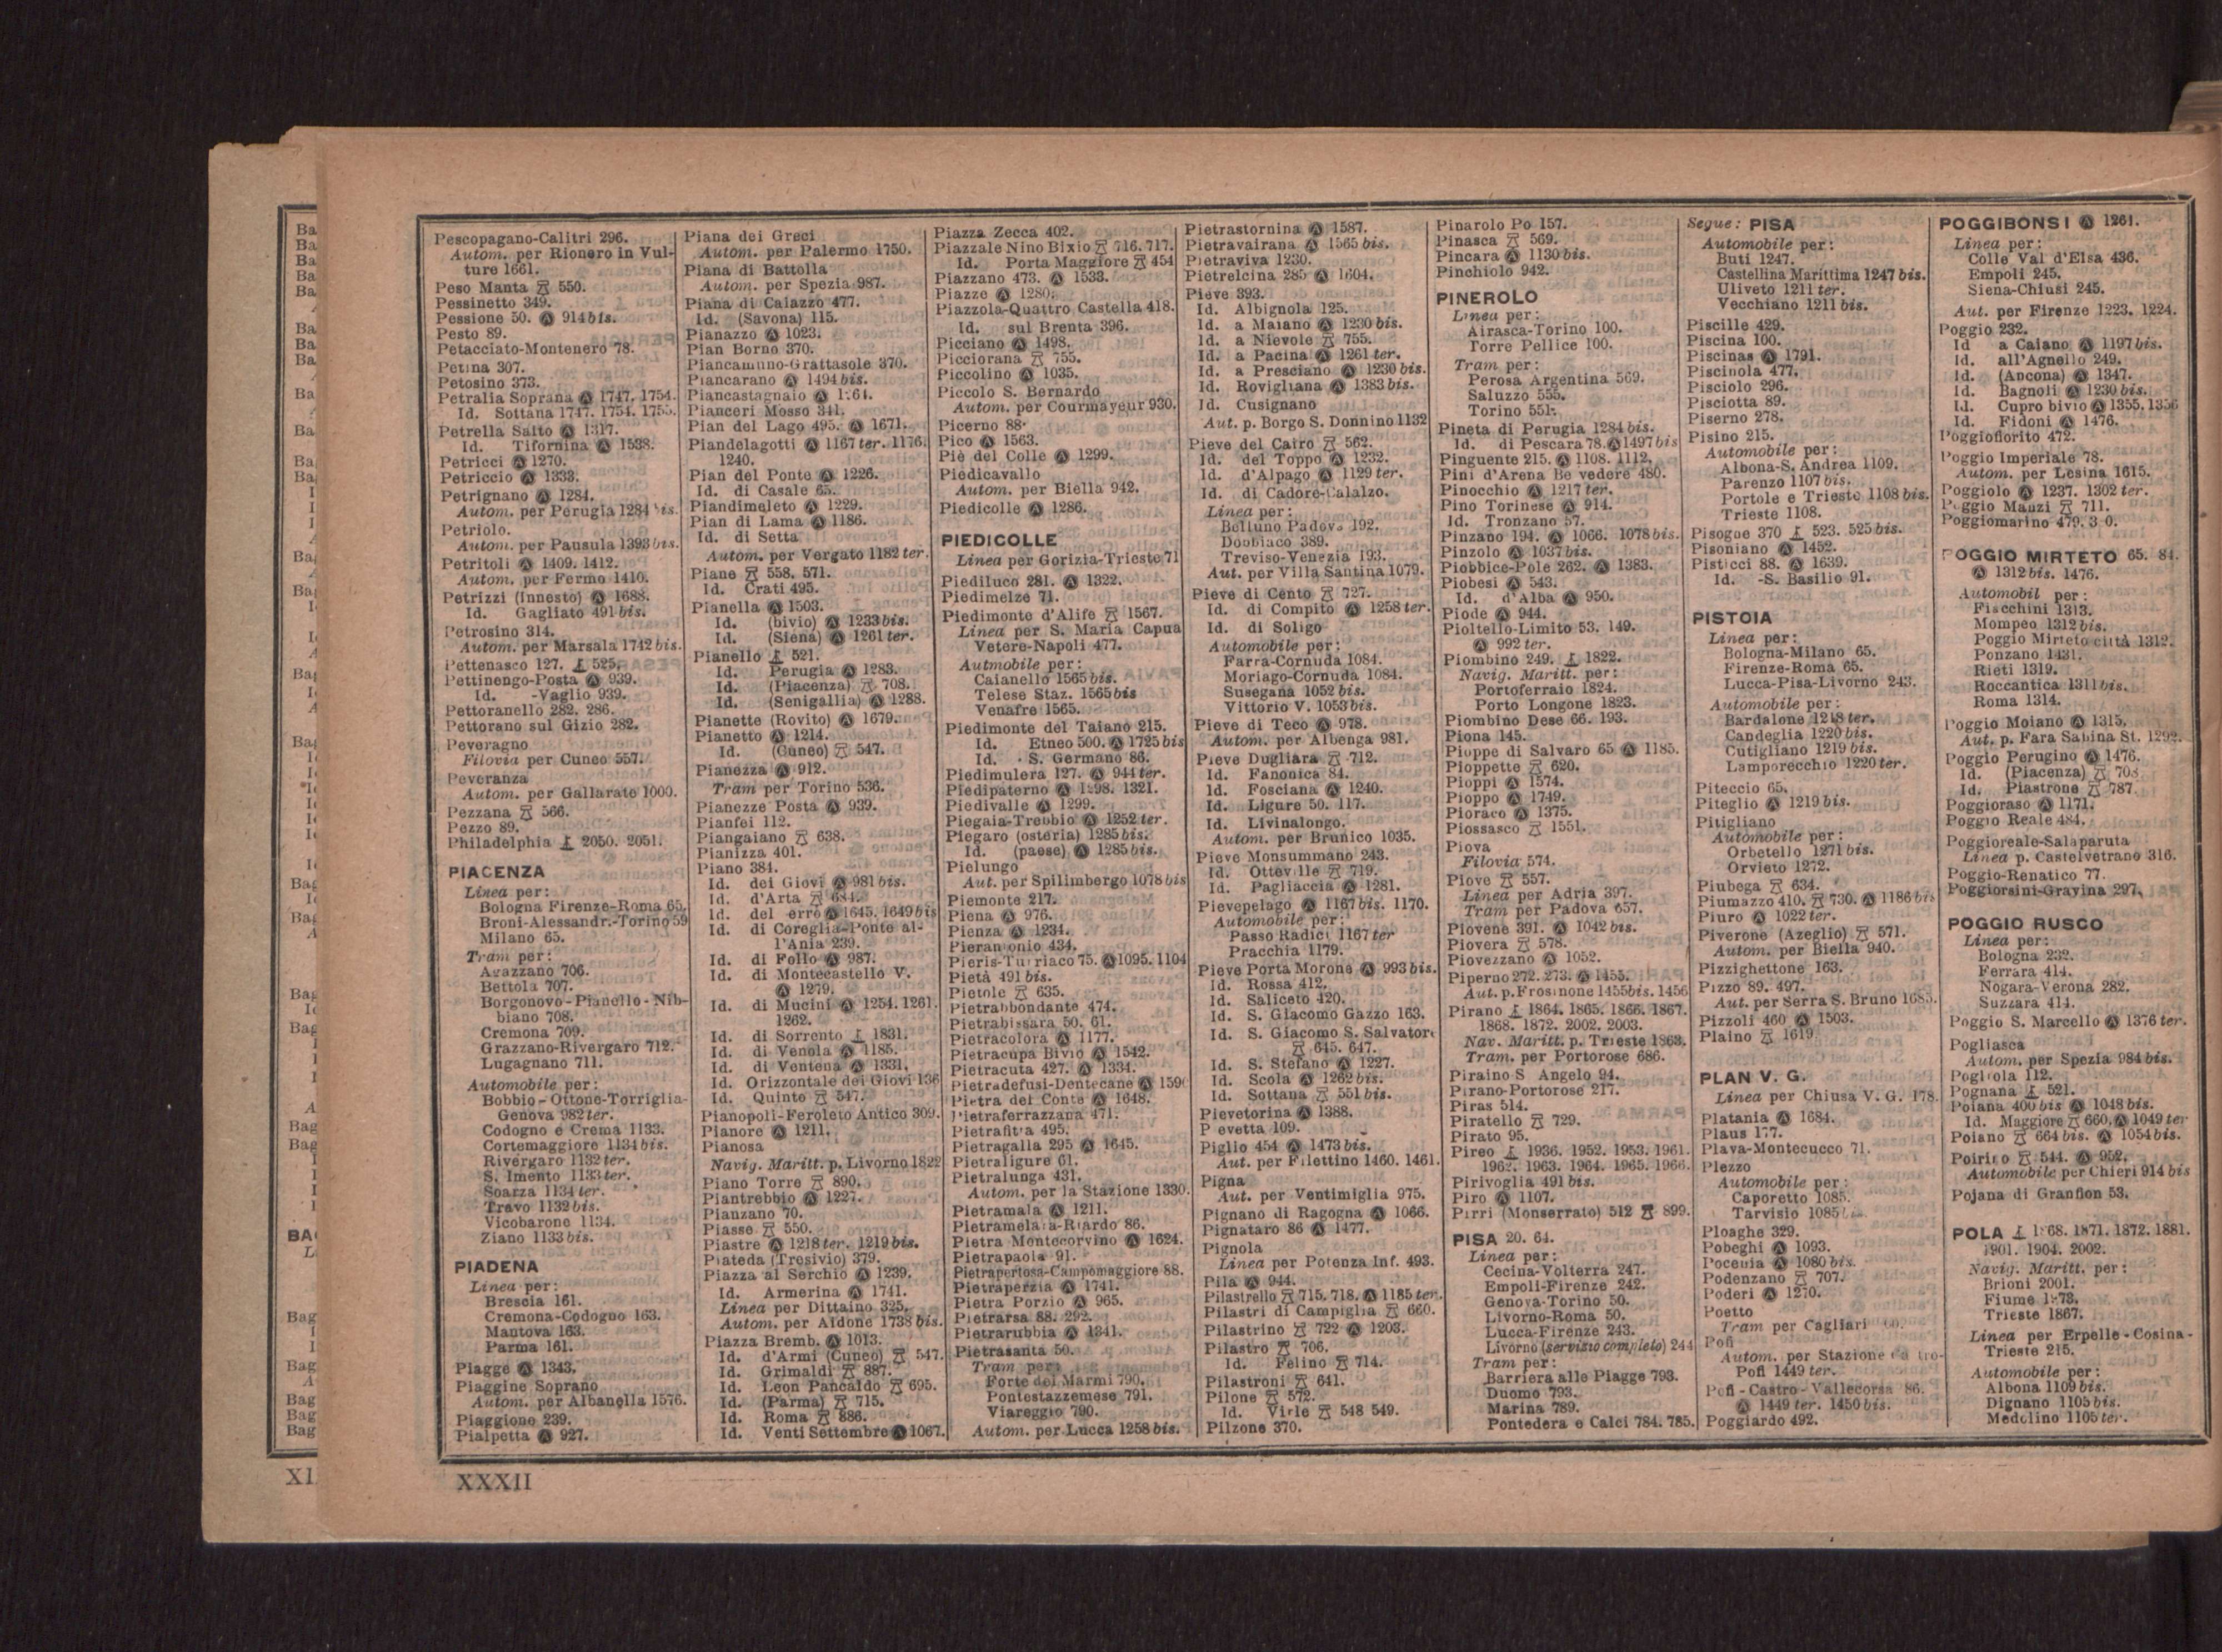 Pescopagano-Calitri 296.
Autom. per Rionero in Vul-
ture 1661.
Peso Manta 550.
Pessinetto 349.
Pessione 50. Ⓐ 914 bis.
Pesto 89.
Petacciato-Montenero 78.
Petina 307.
Petosino 373.
Petralia Soprana Ⓐ 1747. 1754.
Id. Sottana 1747. 1754. 1755.
Petrella Salto Ⓐ 1317.
Id. Tifernina Ⓐ 1538.
Petricci Ⓐ 1270.
Petriccio Ⓐ 1333.
Petrignano Ⓐ 1284.
Autom. per Perugia 1284 bis.
Petriolo.
Autom. per Pausula 1393 bis.
Petritoli Ⓐ 1409. 1412.
Autom. per Fermo 1410.
Petrizzi (Innesto) Ⓐ 1688.
Id. Gagliato 491 bis.
Petrosino 314.
Autom. per Marsala 1742 bis.
Pettenasco 127. 525.
Pettinengo-Posta Ⓐ 939.
Id. -Vaglio 939.
Pettoranello 282. 286.
Pettorano sul Gizio 282.
Peveragno
Filovia per Cuneo 557.
Peveranza
Autom. per Gallarate 1000.
Pezzana 566.
Pezzo 89.
Philadelphia 2050. 2051.
PIACENZA
Linea per:
Bologna Firenze-Roma 65.
Broni-Alessandr.-Torino 59
Milano 65.
Tram per:
Agazzano 706.
Bettola 707.
Borgonovo-Pianello-Nib-
biano 708.
Cremona 709.
Grazzano-Rivergaro 712.
Lugagnano 711.
Automobile per:
Bobbio-Ottone-Torriglia-
Genova 982 ter.
Codogno e Crema 1133.
Cortemaggiore 1134 bis.
Rivergaro 1132 ter.
S. Imento 1133 ter.
Soarza 1134 ter.
Travo 1132 bis.
Vicobarone 1134.
Ziano 1133 bis.
PIADENA
Linea per:
Brescia 161.
Cremona-Codogno 163.
Mantova 163.
Parma 161.
Piagge Ⓐ 1343.
Piaggine Soprano
Autom. per Albanella 1576.
Piaggione 239.
Pialpetta Ⓐ 927.
Piana dei Greci
Autom. per Palermo 1750.
Piana di Battolla
Autom. per Spezia 987.
Piana di Caiazzo 477.
Id. (Savona) 115.
Pianazzo Ⓐ 1023.
Pian Borno 370.
Piancamuno-Grattasole 370.
Piancarano Ⓐ 1494 bis.
Piancastagnaio Ⓐ
Pianceri Mosso 341.
Pian del Lago 495. Ⓐ 1671.
Piandelagotti Ⓐ 1167 ter. 1176.
1240.
Pian del Ponte Ⓐ 1226.
Id. di Casale 65.
Piandimeleto Ⓐ 1229.
Pian di Lama Ⓐ 1186.
Id. di Setta
Autom. per Vergato 1182 ter.
Piane 558. 571.
Id. Crati 495.
Pianella Ⓐ 1503.
Id. (bivio) Ⓐ 1233 bis.
Id. (Siena) Ⓐ 1261 ter.
Pianello 521.
Id. Perugia Ⓐ 1283.
Id. (Piacenza) 708.
Id. (Senigallia) Ⓐ 1288.
Pianette (Rovito) Ⓐ 1679.
Pianetto Ⓐ 1214.
Id. (Cuneo) 547.
Pianezza Ⓐ 912.
Tram per Torino 536.
Pianezze Posta Ⓐ 939.
Pianfei 112.
Piangaiano 638.
Pianizza 401.
Piano 384.
Id. dei Giovi Ⓐ 981 bis.
Id. d'Arta 684.
Id. del erro Ⓐ 1645. 1649 bis
Id. di Coreglia-Ponte al-
l'Ania 239.
Id. di Follo Ⓐ 987.
Id. di Montecastello V.
Ⓐ 1279.
Id. di Mucini Ⓐ 1254. 1261.
1262.
Id. di Sorrento 1831.
Id. di Venola Ⓐ 1185.
Id. di Ventena Ⓐ 1331.
Id. Orizzontale dei Giovi 136
Id. Quinto 547.
Pianopoli-Feroleto Antico 309.
Pianore Ⓐ 1211.
Pianosa
Navig. Maritt. p. Livorno 1822
Piano Torre 890.
Piantrebbio Ⓐ 1227.
Pianzano 70.
Piasse 550.
Piastre Ⓐ 1218 ter. 1219 bis.
Piateda (Tresivio) 379.
Piazza al Serchio Ⓐ 1239.
Id. Armerina Ⓐ 1741.
Linea per Dittaino 325.
Autom. per Aidone 1738 bis.
Piazza Bremb. Ⓐ 1013.
Id. d'Armi (Cuneo) 547.
Id. Grimaldi 887.
Id. Leon Pancaldo 695.
Id. (Parma) 715.
Id. Roma 886.
Id. Venti Settembre Ⓐ 1067.
Piazza Zecca 402.
Piazzale Nino Bixio 716. 717.
Id. Porta Maggiore 454
Piazzano 473. Ⓐ 1533.
Piazze Ⓐ 1280.
Piazzola-Quattro Castella 418.
Id. sul Brenta 396.
Picciano Ⓐ 1498.
Picciorana 755.
Piccolino Ⓐ 1035.
Piccolo S. Bernardo
Autom. per Courmayeur 930.
Picerno 88.
Pico Ⓐ 1563.
Piè del Colle Ⓐ 1299.
Piedicavallo
Autom. per Biella 942.
Piedicolle Ⓐ 1286.
PIEDICOLLE
Linea per Gorizia-Trieste 71
Piediluco 281. Ⓐ 1322.
Piedimelze 71.
Piedimonte d'Alife 1567.
Linea per S. Maria Capua
Vetere-Napoli 477.
Autmobile per:
Caianello 1565 bis.
Telese Staz. 1565 bis
Venafre 1565.
Piedimonte del Taiano 215.
Id. Etneo 500. Ⓐ 1725 bis
Id. S. Germano 86.
Piedimulera 127. Ⓐ 944 ter.
Piedipaterno Ⓐ 1298. 1321.
Piedivalle Ⓐ 1299.
Piegaia-Trebbio Ⓐ 1252 ter.
Piegaro (osteria) 1285 bis.
Id. (paese) Ⓐ 1285 bis.
Pielungo
Aut. per Spilimbergo 1078 bis
Piemonte 217.
Piena Ⓐ 976.
Pienza Ⓐ 1234.
Pierantonio 434.
Pieris-Turriaco 75. Ⓐ 1095. 1104
Pietà 491 bis.
Pietole 635.
Pietrabbondante 474.
Pietrabissara 50. 61.
Pietracolora Ⓐ 1177.
Pietracupa Bivio Ⓐ 1542.
Pietracuta 427. Ⓐ 1334.
Pietradefusi-Dentecane Ⓐ
Pietra del Conte Ⓐ 1648.
Pietraferrazzana 471.
Pietrafitta 495.
Pietragalla 295 Ⓐ 1645.
Pietraligure 61.
Pietralunga 431.
Autom. per la Stazione 1330.
Pietramala Ⓐ 1211.
Pietramelara-Riardo 86.
Pietra Montecorvino Ⓐ 1624.
Pietrapaola 91.
Pietrapertosa-Campomaggiore 88.
Pietraperzia Ⓐ 1741.
Pietra Porzio Ⓐ 965.
Pietrarsa 88. 292.
Pietrarubbia Ⓐ 1341.
Pietrasanta 50.
Tram per:
Forte dei Marmi 790.
Pontestazzemese 791.
Viareggio 790.
Autom. per Lucca 1258 bis.
Pietrastornina Ⓐ 1587.
Pietravairana Ⓐ 1565 bis.
Pietraviva 1230.
Pietrelcina 285 Ⓐ 1604.
Pieve 393.
Id. Albignola 125.
Id. a Maiano Ⓐ 1230 bis.
Id. a Nievole 755.
Id. a Pacina Ⓐ 1261 ter.
Id. a Presciano Ⓐ 1230 bis.
Id. Rovigliana Ⓐ 1383 bis.
Id. Cusignano
Aut. p. Borgo S. Donnino 1132
Pieve del Cairo 562.
Id. del Toppo Ⓐ 1232.
Id. d'Alpago Ⓐ 1129 ter.
Id. di Cadore-Calalzo.
Linea per:
Belluno Padova 192.
Dobbiaco 389.
Treviso-Venezia 193.
Aut. per Villa Santina 1079.
Pieve di Cento 727.
Id. di Compito Ⓐ 1258 ter.
Id. di Soligo
Automobile per:
Farra-Cornuda 1084.
Moriago-Cornuda 1084.
Susegana 1052 bis.
Vittorio V. 1053 bis.
Pieve di Teco Ⓐ 978.
Autom. per Albenga 981.
Pieve Dugliara 712.
Id. Fanonica 84.
Id. Fosciana Ⓐ 1240.
Id. Ligure 50. 117.
Id. Livinalongo.
Autom. per Brunico 1035.
Pieve Monsummano 243.
Id. Otteville 719.
Id. Pagliaccia Ⓐ 1281.
Pievepelago Ⓐ 1167 bis. 1170.
Automobile per:
Passo Radici 1167 ter
Pracchia 1179.
Pieve Porta Morone Ⓐ 993 bis.
Id. Rossa 412.
Id. Saliceto 420.
Id. S. Giacomo Gazzo 163.
Id. S. Giacomo S. Salvatore
645. 647.
Id. S. Stefano Ⓐ 1227.
Id. Scola Ⓐ 1262 bis.
Id. Sottana 551 bis.
Pievetorina Ⓐ 1388.
P evetta 109.
Piglio 454 Ⓐ 1473 bis.
Aut. per Filettino 1460. 1461.
Pigna
Aut. per Ventimiglia 975.
Pignano di Ragogna Ⓐ 1066.
Pignataro 86 Ⓐ 1477.
Pignola
Linea per Potenza Inf. 493.
Pila Ⓐ 944.
Pilastrello 715. 718. Ⓐ 1185 ter.
Pilastri di Campiglia 660.
Pilastrino 722 Ⓐ 1203.
Pilastro 706.
Id. Felino 714.
Pilastroni 641.
Pilone 572.
Id. Virle 548 549.
Pilzone 370.
Pinarolo Po 157.
Pinasca 569.
Pincara Ⓐ 1130 bis.
Pinchiolo 942.
PINEROLO
Linea per:
Airasca-Torino 100.
Torre Pellice 100.
Tram per:
Perosa Argentina 569.
Saluzzo 555.
Torino 551.
Pineta di Perugia 1284 bis.
Id. di Pescara 78. Ⓐ 1497 bis
Pinguente 215. Ⓐ 1108. 1112.
Pini d'Arena Be vedere 480.
Pinocchio Ⓐ 1217 ter.
Pino Torinese Ⓐ 914.
Id. Tronzano 57.
Pinzano 194. Ⓐ 1066. 1078 bis.
Pinzolo Ⓐ 1037 bis.
Piobbice-Pole 262. Ⓐ 1383.
Piobesi Ⓐ 543.
Id. d'Alba Ⓐ 950.
Piode Ⓐ 944.
Pioltello-Limito 53. 149.
Ⓐ 992 ter.
Piombino 249. 1822.
Navig. Maritt. per:
Portoferraio 1824.
Porto Longone 1823.
Piombino Dese 66. 193.
Piona 145.
Pioppe di Salvaro 65 Ⓐ 1185.
Pioppette 620.
Pioppi Ⓐ 1574.
Pioppo Ⓐ 1749.
Pioraco Ⓐ 1375.
Piossasco 1551.
Piova
Filovia 574.
Piove 557.
Linea per Adria 397.
Tram per Padova 657.
Piovene 391. Ⓐ 1042 bis.
Piovera 578.
Piovezzano Ⓐ 1052.
Piperno 272. 273. Ⓐ 1455.
Aut. p. Frosinone 1455 bis. 1456
Pirano 1864. 1865. 1866. 1867.
1868. 1872. 2002. 2003.
Nav. Maritt. p. Trieste 1863.
Tram. per Portorose 686.
Piraino S Angelo 94.
Pirano-Portorose 217.
Piras 514.
Piratello 729.
Pirato 95.
Pireo 1936. 1952. 1953. 1961.
1962. 1963. 1964. 1965. 1966.
Pirivoglia 491 bis.
Piro Ⓐ 1107.
Pirri (Monserrato) 512 899.
PISA 20. 64.
Linea per:
Cecina-Volterra 247.
Empoli-Firenze 242.
Genova-Torino 50.
Livorno-Roma 50.
Lucca-Firenze 243.
Livorno (servizio completo) 244
Tram per:
Barriera alle Piagge 793.
Duomo 793.
Marina 789.
Pontedera e Calci 784. 785.
Segue: PISA
Automobile per:
Buti 1247.
Castellina Marittima 1247 bis.
Uliveto 1211 ter.
Vecchiano 1211 bis.
Piscille 429.
Piscina 100.
Piscinas Ⓐ 1791.
Piscinola 477.
Pisciolo 296.
Pisciotta 89.
Piserno 278.
Pisino 215.
Automobile per:
Albona-S. Andrea 1109.
Parenzo 1107 bis.
Portole e Trieste 1108 bis.
Trieste 1108.
Pisogne 370 523. 525 bis.
Pisoniano Ⓐ 1452.
Pisticci 88. Ⓐ 1639.
Id. -S. Basilio 91.
PISTOIA
Linea per:
Bologna-Milano 65.
Firenze-Roma 65.
Lucca-Pisa-Livorno 243.
Automobile per:
Bardalone 1218 ter.
Candeglia 1220 bis.
Cutigliano 1219 bis.
Lamporecchio 1220 ter.
Piteccio 65.
Piteglio Ⓐ 1219 bis.
Pitigliano
Automobile per:
Orbetello 1271 bis.
Orvieto 1272.
Piubega 634.
Piumazzo 410. 730. Ⓐ 1186 bis
Piuro Ⓐ 1022 ter.
Piverone (Azeglio) 571.
Autom. per Biella 940.
Pizzighettone 163.
Pizzo 89. 497.
Aut. per Serra S. Bruno 1685.
Pizzoli 460 Ⓐ 1503.
Plaino 1619
PLAN V. G.
Linea per Chiusa V. G. 178.
Platania Ⓐ 1684.
Plaus 177.
Plava-Montecucco 71.
Plezzo
Automobile per:
Caporetto 1085.
Tarvisio 1085
Ploaghe 329.
Pobeghi Ⓐ 1093.
Pocenia Ⓐ 1080 bis.
Podenzano 707.
Poderi Ⓐ 1270.
Poetto
Tram per Cagliari
Pofi
Autom. per Stazione
Pofi 1449 ter.
Pofi-Castro-Vallecorsa 86.
Ⓐ 1449 ter. 1450 bis.
Poggiardo 492.
POGGIBONSI Ⓐ 1261.
Linea per:
Colle Val d'Elsa 436.
Empoli 245.
Siena-Chiusi 245.
Aut. per Firenze 1223. 1224.
Poggio 232.
Id a Caiano Ⓐ 1197 bis.
Id. all'Agnello 249.
Id. (Ancona) Ⓐ 1347.
Id. Bagnoli Ⓐ 1230 bis.
Id. Cupro bivio Ⓐ 1355. 1356
Id. Fidoni Ⓐ 1476.
Poggiofiorito 472.
Poggio Imperiale 78.
Autom. per Lesina 1615.
Poggiolo Ⓐ 1237. 1302 ter.
Poggio Manzi 711.
Poggiomarino 479.
POGGIO MIRTETO 65. 84.
Ⓐ 1312 bis. 1476.
Automobil per:
Fiacchini 1313.
Mompeo 1312 bis.
Poggio Mirteto città 1312.
Ponzano 1431.
Rieti 1319.
Roccantica 1311 bis.
Roma 1314.
Poggio Moiano Ⓐ 1315.
Aut. p. Fara Sabina St. 1292.
Poggio Perugino Ⓐ 1476.
Id. (Piacenza) 708
Id. Piastrone 787
Poggioraso Ⓐ 1171.
Poggio Reale 484.
Poggioreale-Salaparuta
Linea p. Castelvetrano 316.
Poggio-Renatico 77.
Poggiorsini-Gravina 297.
POGGIO RUSCO
Linea per:
Bologna 232.
Ferrara 414.
Nogara-Verona 282.
Suzzara 414.
Poggio S. Marcello Ⓐ 1376 ter.
Pogliasca
Autom. per Spezia 984 bis.
Pogliola 112.
Pognana 521.
Poiana 400 bis Ⓐ 1048 bis.
Id. Maggiore 660. Ⓐ 1049 ter
Poiano 664 bis. Ⓐ 1054 bis.
Poirino 544. Ⓐ 952.
Automobile per Chieri 914 bis
Pojana di Granfion 53.
POLA 1868. 1871. 1872. 1881.
1901. 1904. 2002.
Navig. Maritt. per:
Brioni 2001.
Fiume 1873.
Trieste 1867.
Linea per Erpelle-Cosina-
Trieste 215.
Automobile per:
Albona 1109 bis.
Dignano 1105 bis.
Medolino 1105 ter.
XXXII